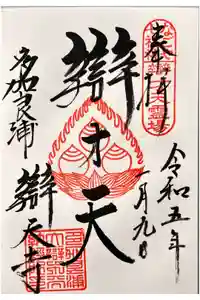 奉拝
令和五年
一月九日
辯才天
多加良浦
辯天寺